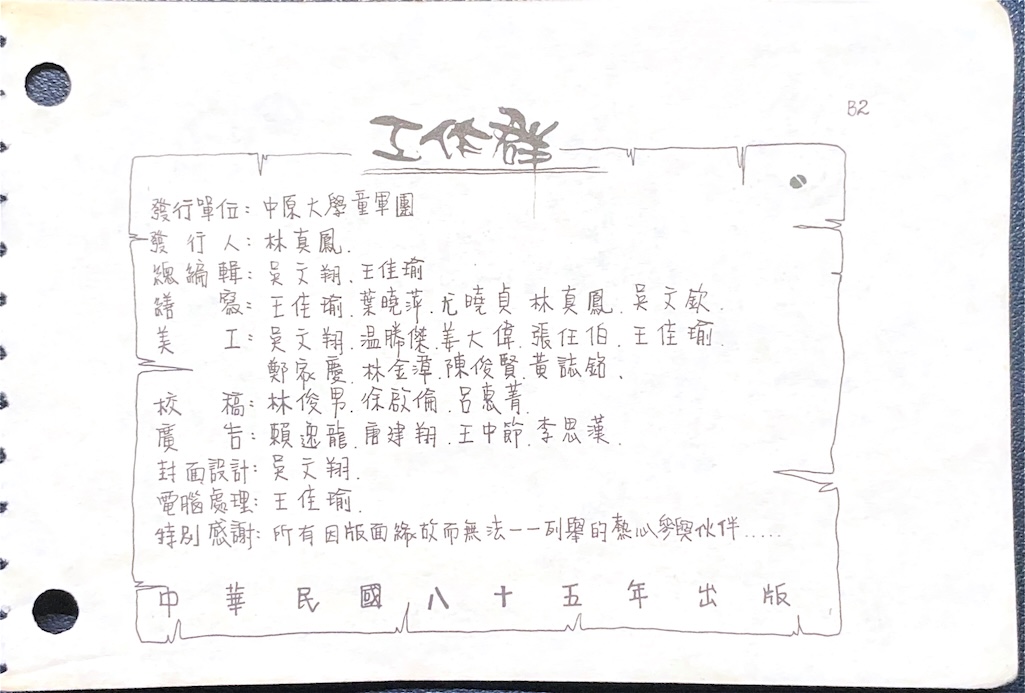 B2
工作群
發行單位：中原大學童軍團
發行人：林真鳳.
總編輯：吳文翔.王佳瑜
繕寫：王佳瑜.葉曉萍.尤曉貞 林真鳳.吳文欽.
美工：吳文翔.温勝傑.姜大偉.張任伯.王佳瑜.
鄭家慶.林金漳.陳俊賢.黃誌銘.
校稿：林俊男.徐啟倫.呂惠菁.
廣告：賴逸龍.唐建翔.王中節.李思漢.
封面設計：吳文翔.
電腦處理：王佳瑜.
特別感謝：所有因版面緣故而無法一一列舉的熱心參與伙伴.....
中華民國八十五年出版